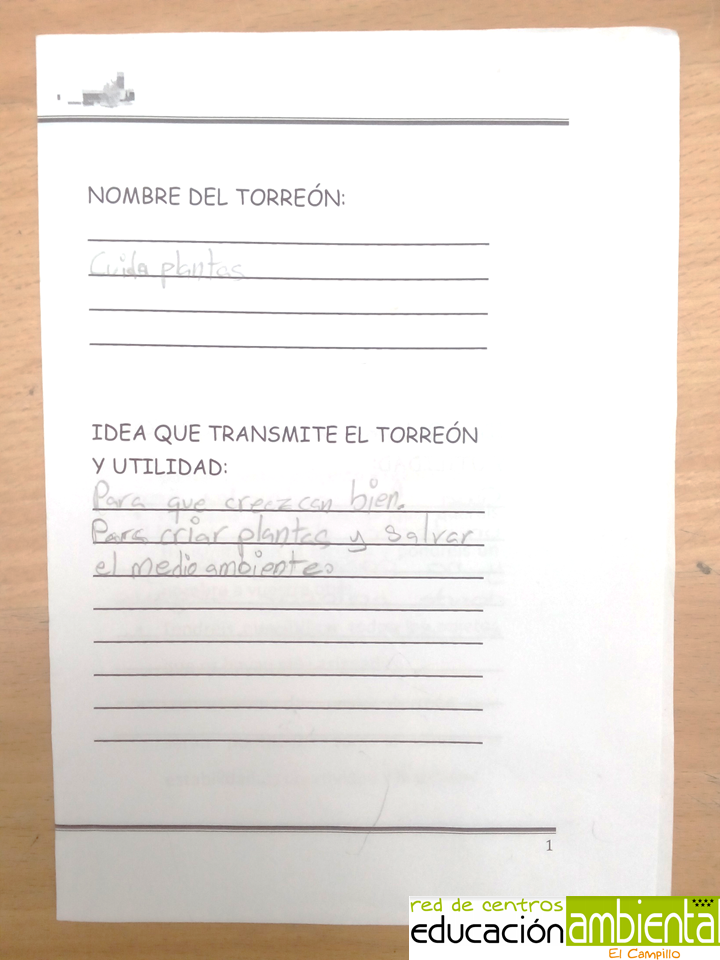 NOMBRE DEL TORREÓN:
Cuida plantas
IDEA QUE TRANSMITE EL TORREÓN
Y UTILIDAD:
Para que creezcan bien.
Para criar plantas y salvar
el medio ambiente.
1
red de centros
educación ambiental
El Campillo